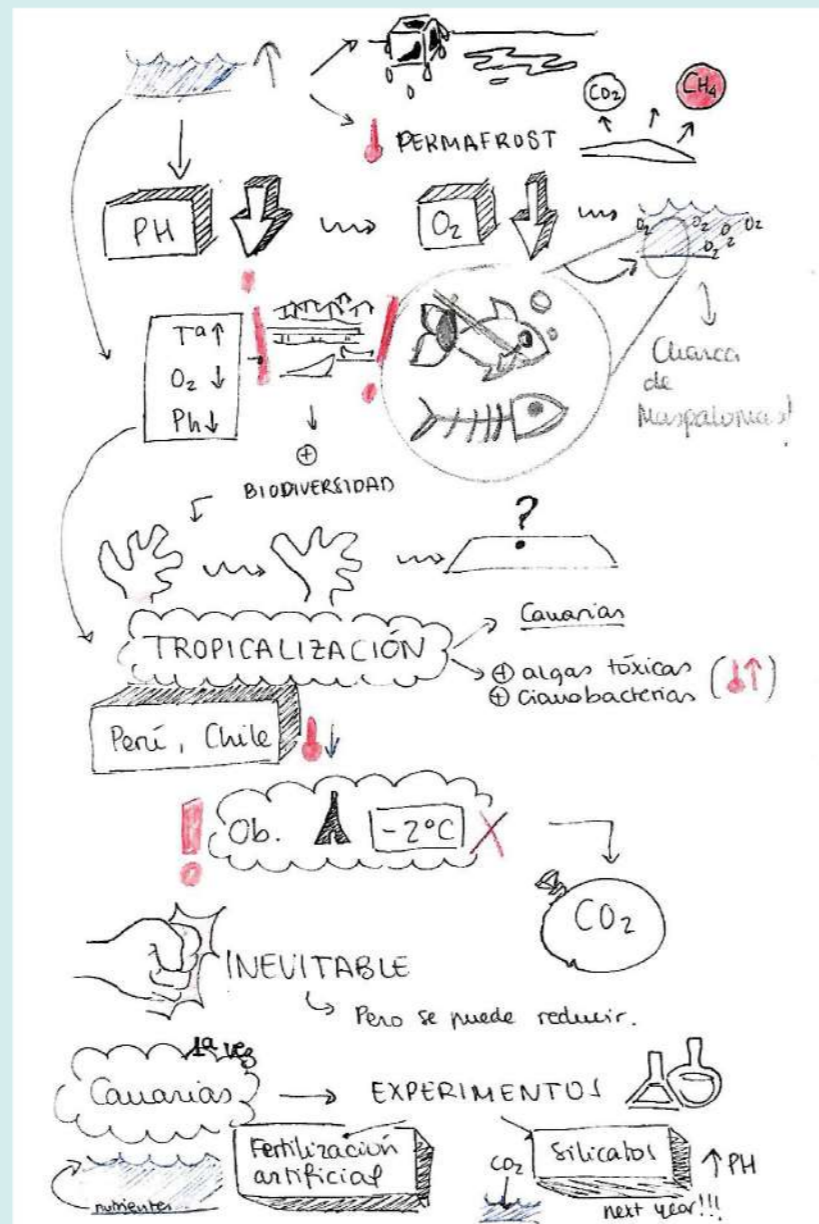 CO2 CH4
PERMAFROST
PH O2
O2 O2 O2 O2 O2
Tª↑
O2 ↓
Ph↓
Charca
de
Maspalomas!
⊕
BIODIVERSIDAD
?
TROPICALIZACIÓN
Canarias
⊕ algas tóxicas
⊕ cianobacterias (↑)
Perú, Chile ↓
Ob. -2°C X
CO2
INEVITABLE
Pero se puede reducir.
1ª vez
Canarias → EXPERIMENTOS
Fertilización
artificial
Silicatos
CO2
↑ PH
nutrientes
next year!!!